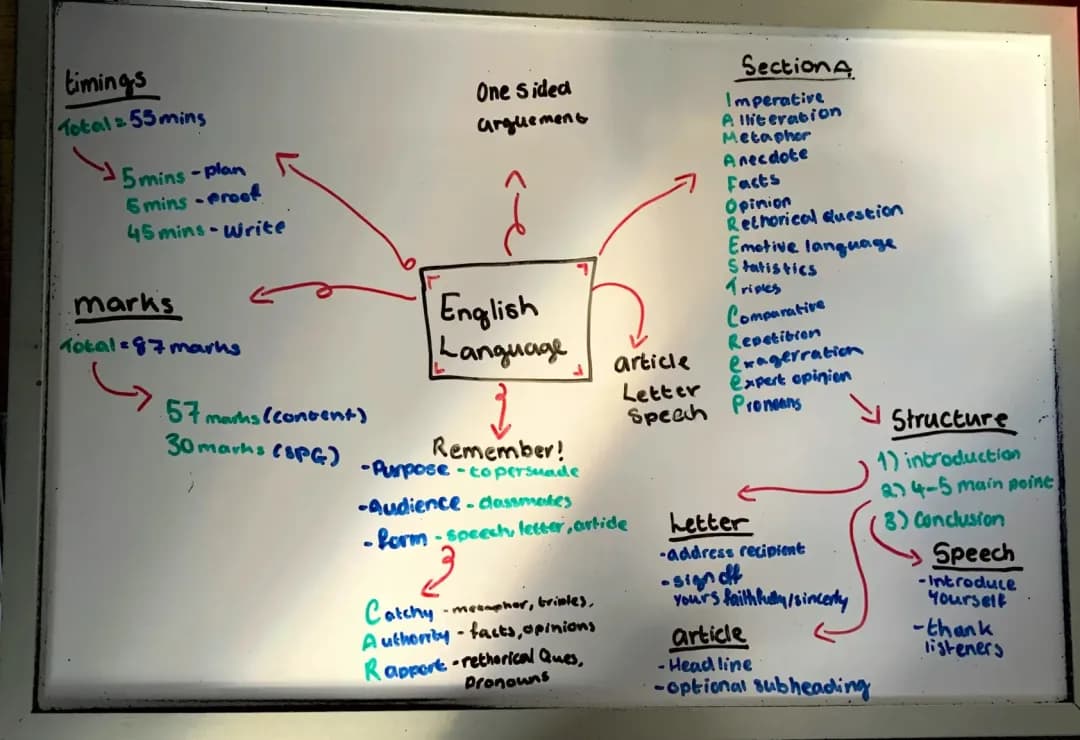 timings
Total = 55 mins
5 mins - plan
5 mins - proof
45 mins - write
marks
Total = 87 marks
57 marks (content)
30 marks (SPG)
One Sided
arguement
English
Language
article
Letter
Speech
Remember!
- Purpose - to persuade
- Audience - classmates
- form - speech, letter, article
Catchy - metaphor, triples,
Authority - facts, opinions
Rapport - rethorical Ques,
pronouns
Section A
Imperative
Alliteration
Metaphor
Anecdote
Facts
Opinion
Rethorical Question
Emotive language
Statistics
Triples
Comparative
Repetition
exagerration
expert opinion
Pronouns
Structure
1) introduction
2) 4-5 main point
3) Conclusion
Letter
- address recipient
- sign off
yours faithfully/sincerly
article
- Headline
- optional subheading
Speech
- Introduce
yourself
- thank
listeners